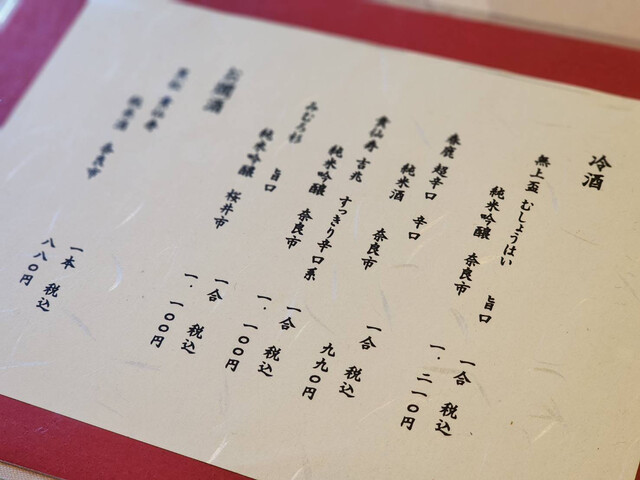 冷酒
無上盃 むしょうはい 旨口
純米吟醸 奈良市
一合 税込
一・二一〇円
春鹿 超辛口 辛口
純米酒 奈良市
一合 税込
九九〇円
貴仙寿 吉兆 すっきり辛口系
純米吟醸 奈良市
一合 税込
一・一〇〇円
みむろ杉 旨口
純米吟醸 桜井市
一合 税込
一・一〇〇円
お燗酒
純米酒 奈良市
一本 税込
八八〇円